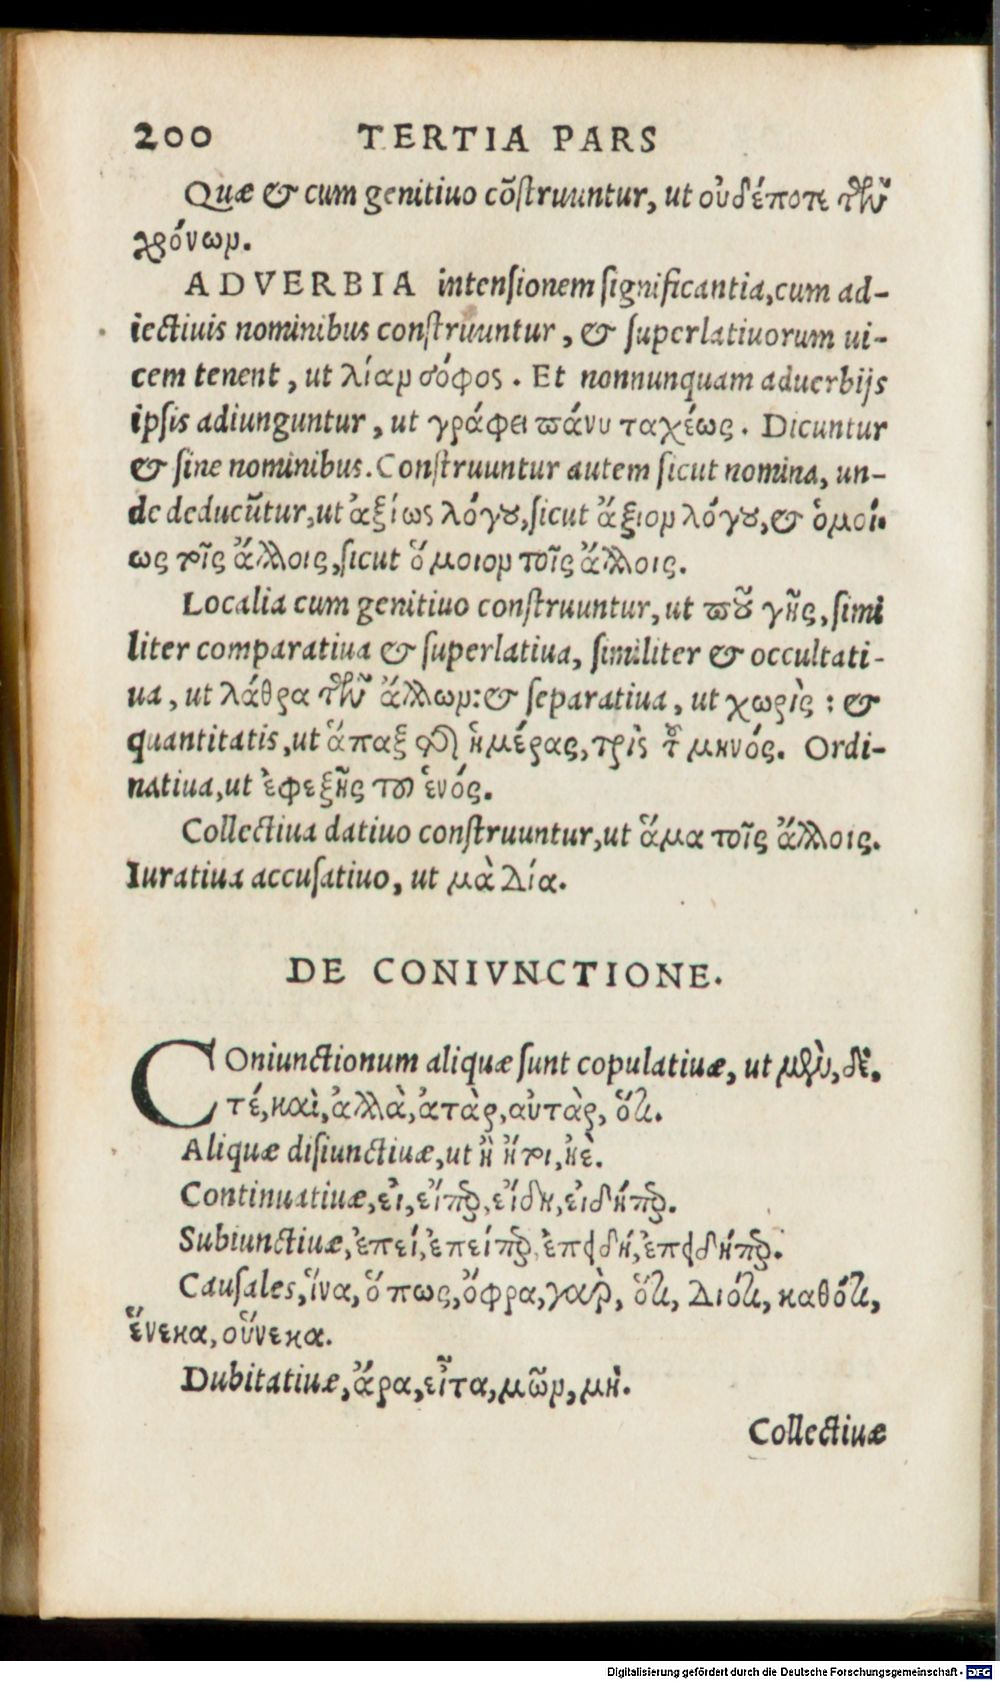 200 TERTIA PARS
Quæ & cum genitiuo cõſtruuntur, ut οὐδέποτε τῶν
χρόνων.
ADVERBIA intenſionem ſignificantia, cum ad-
iectiuis nominibus conſtruuntur, & ſuperlatiuorum ui-
cem tenent, ut λίαν σόφος. Et nonnunquam aduerbijs
ipſis adiunguntur, ut γράφει πάνυ ταχέως. Dicuntur
& ſine nominibus. Conſtruuntur autem ſicut nomina, un-
de deducũtur, ut ἀξίως λόγȣ, ſicut ἄξιον λόγȣ, & ὁμοί-
ως τοῖς ἄλλοις, ſicut ὅμοιον τοῖς ἄλλοις.
Localia cum genitiuo conſtruuntur, ut πȣ͂ γῆς, ſimi
liter comparatiua & ſuperlatiua, ſimiliter & occultati-
ua, ut λάθρα τῶν ἄλλων: & ſeparatiua, ut χωρὶς: &
quantitatis, ut ἅπαξ τῆς ἡμέρας, τρὶς τοῦ μηνός. Ordi-
natiua, ut ἐφεξῆς τοῦ ἑνός.
Collectiua datiuo conſtruuntur, ut ἅμα τοῖς ἄλλοις.
Iuratiua accuſatiuo, ut μὰ Δία.
DE CONIVNCTIONE.
COniunctionum aliquæ ſunt copulatiuæ, ut μὲν, δὲ.
τέ, καὶ, ἀλλὰ, ἀτὰρ, αὐτὰρ, ὅτι.
Aliquæ diſiunctiuæ, ut ἢ ἤτοι, ἠὲ.
Continuatiuæ, εἰ, εἴπερ, εἴδη, εἰδήπερ.
Subiunctiuæ, ἐπεί, ἐπείπερ, ἐπειδή, ἐπειδήπερ.
Cauſales, ἵνα, ὅπως, ὄφρα, γὰρ, ὅτι, Διότι, καθότι,
ἕνεκα, οὕνεκα.
Dubitatiuæ, ἆρα, εἶτα, μῶν, μὴ.
Collectiuæ
Digitalisierung gefördert durch die Deutsche Forschungsgemeinschaft - DFG